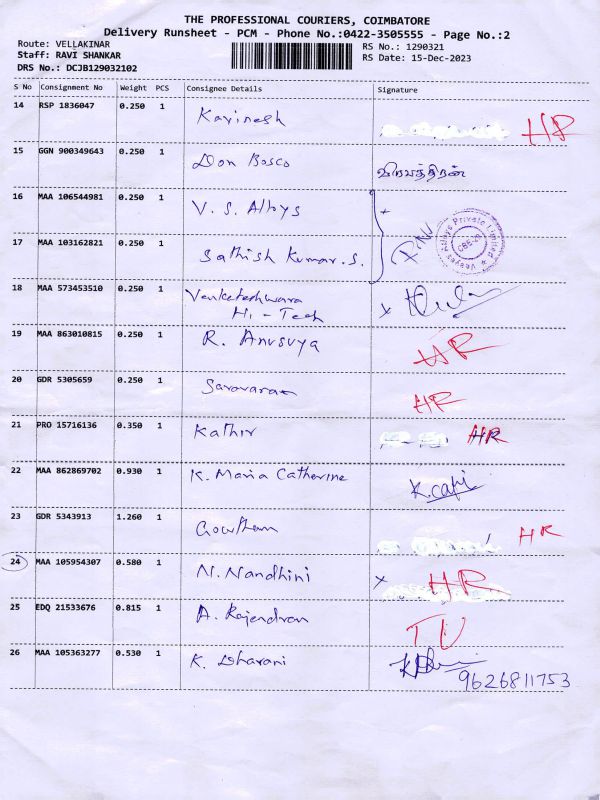 THE PROFESSIONAL COURIERS, COIMBATORE
Delivery Runsheet - PCM - Phone No.:0422-3505555 - Page No.:2
Route: VELLAKINAR
RS No.: 1290321
Staff: RAVI SHANKAR
RS Date: 15-Dec-2023
DRS No.: DCJB129032102
S No Consignment No Weight PCS Consignee Details Signature
14 RSP 1836047 0.250 1 Kavinesh HR
15 GGN 900349643 0.250 1 Don Bosco
16 MAA 106544981 0.250 1 V. S. Alloys
17 MAA 103162821 0.250 1 Sathish Kumar.s.
Veeyes Alloys Private Limited
18 MAA 573453510 0.250 1 Venketeshwara
Hi-Tech
19 MAA 863010815 0.250 1 R. Anusuya HR
20 GDR 5305659 0.250 1 Saravanan HR
21 PRO 15716136 0.350 1 Kathir HR
22 MAA 862869702 0.930 1 K. Maria Catherine
23 GDR 5343913 1.260 1 Gowtham HR
24 MAA 105954307 0.580 1 N. Nandhini x HR
25 EDQ 21533676 0.815 1 A. Rajendran
26 MAA 105363277 0.530 1 K. Dharani
9626811753